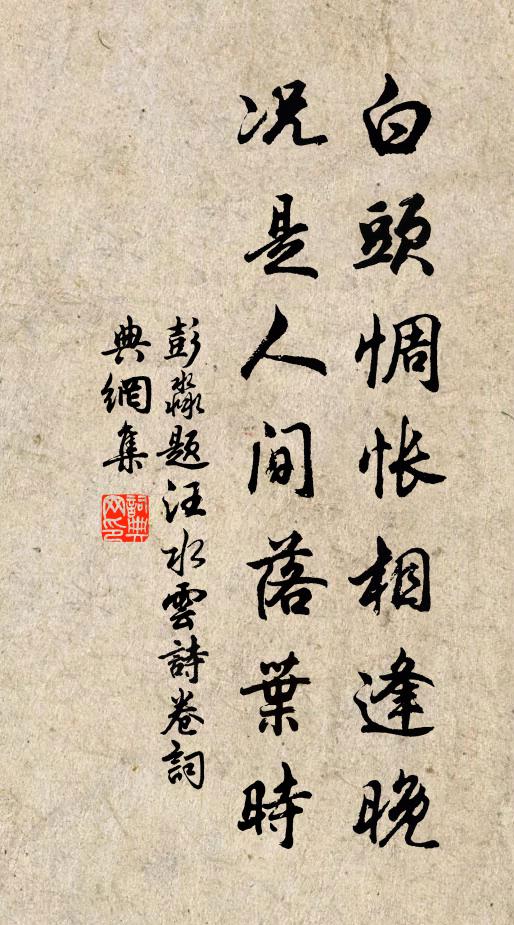 白頭惆悵相逢晚
况是人間落葉時
彭淼題汪水雲詩卷詞
典網集
詞典網印